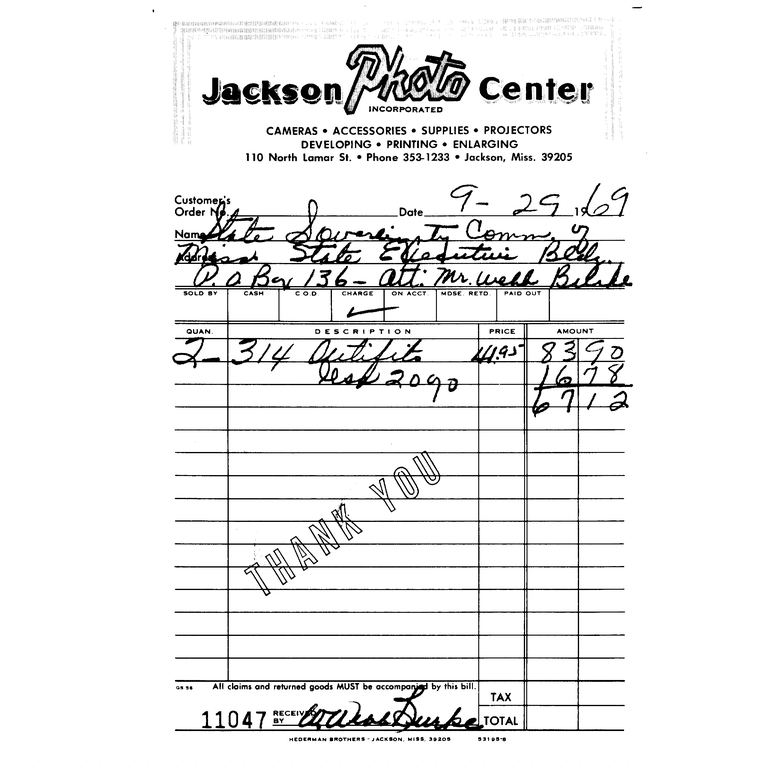 Jackson Photo Center
INCORPORATED
CAMERAS • ACCESSORIES • SUPPLIES • PROJECTORS
DEVELOPING • PRINTING • ENLARGING
110 North Lamar St. • Phone 353-1233 • Jackson, Miss. 39205
Customer's
Order No. Date 9-29 1969
Name State Sovereignty Comm. of
Address Miss. State Executive Bldg.
P.O Box 136 - Att: Mr. Webb
SOLD BY CASH C.O.D. CHARGE ON ACCT. MDSE. RETD. PAID OUT
QUAN. DESCRIPTION PRICE AMOUNT
2- 314 Outifits 41.95 83 90
less 20% 16 78
67 12
THANK YOU
GS 56 All claims and returned goods MUST be accompanied by this bill.
TAX
11047 RECEIVED BY W. Webb Burke TOTAL
HEDERMAN BROTHERS - JACKSON, MISS. 39205 53195-B